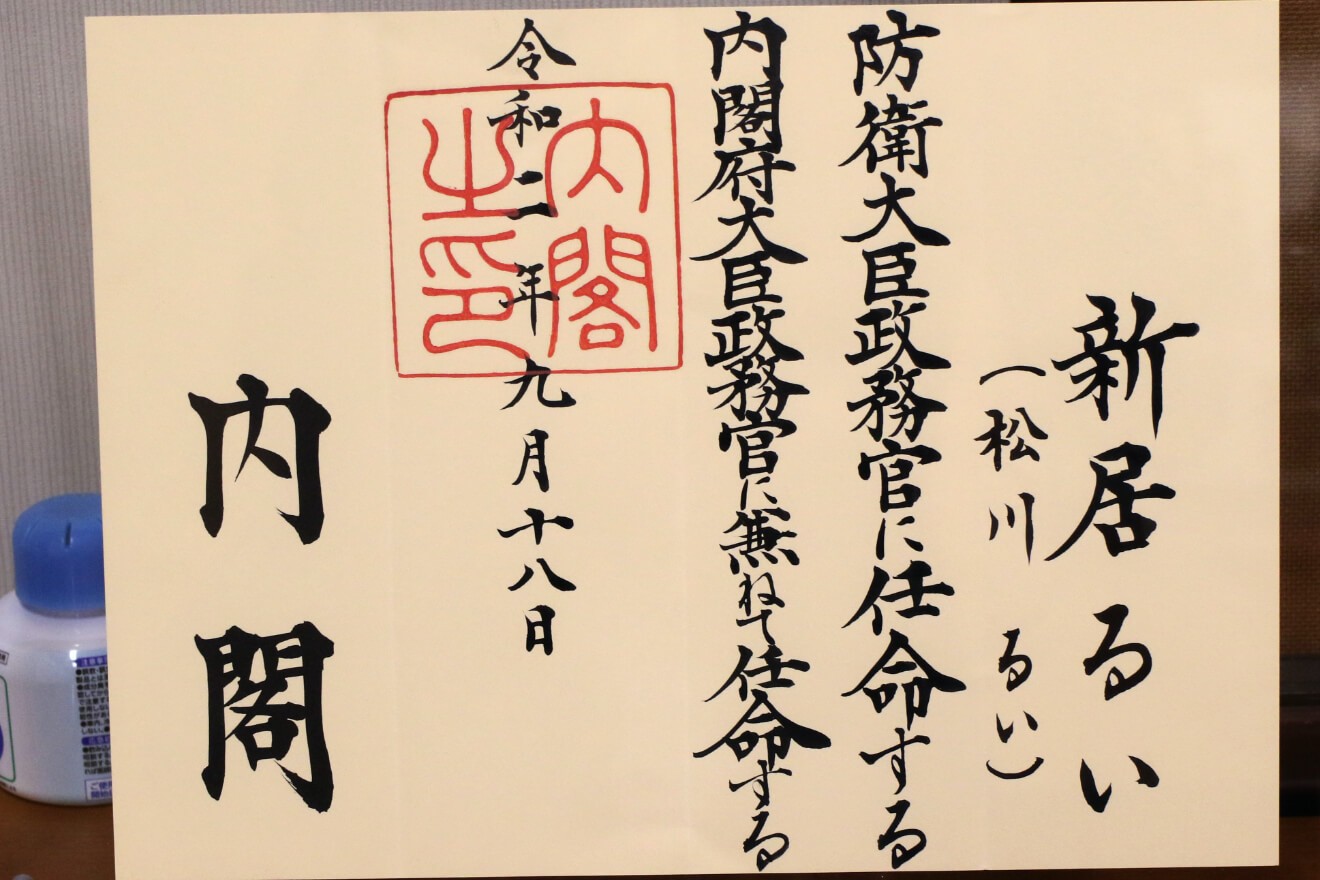 新居るい
(松川るい)
防衛大臣政務官に任命する
内閣府大臣政務官に兼ねて任命する
令和二年九月十八日
内閣之印
内閣